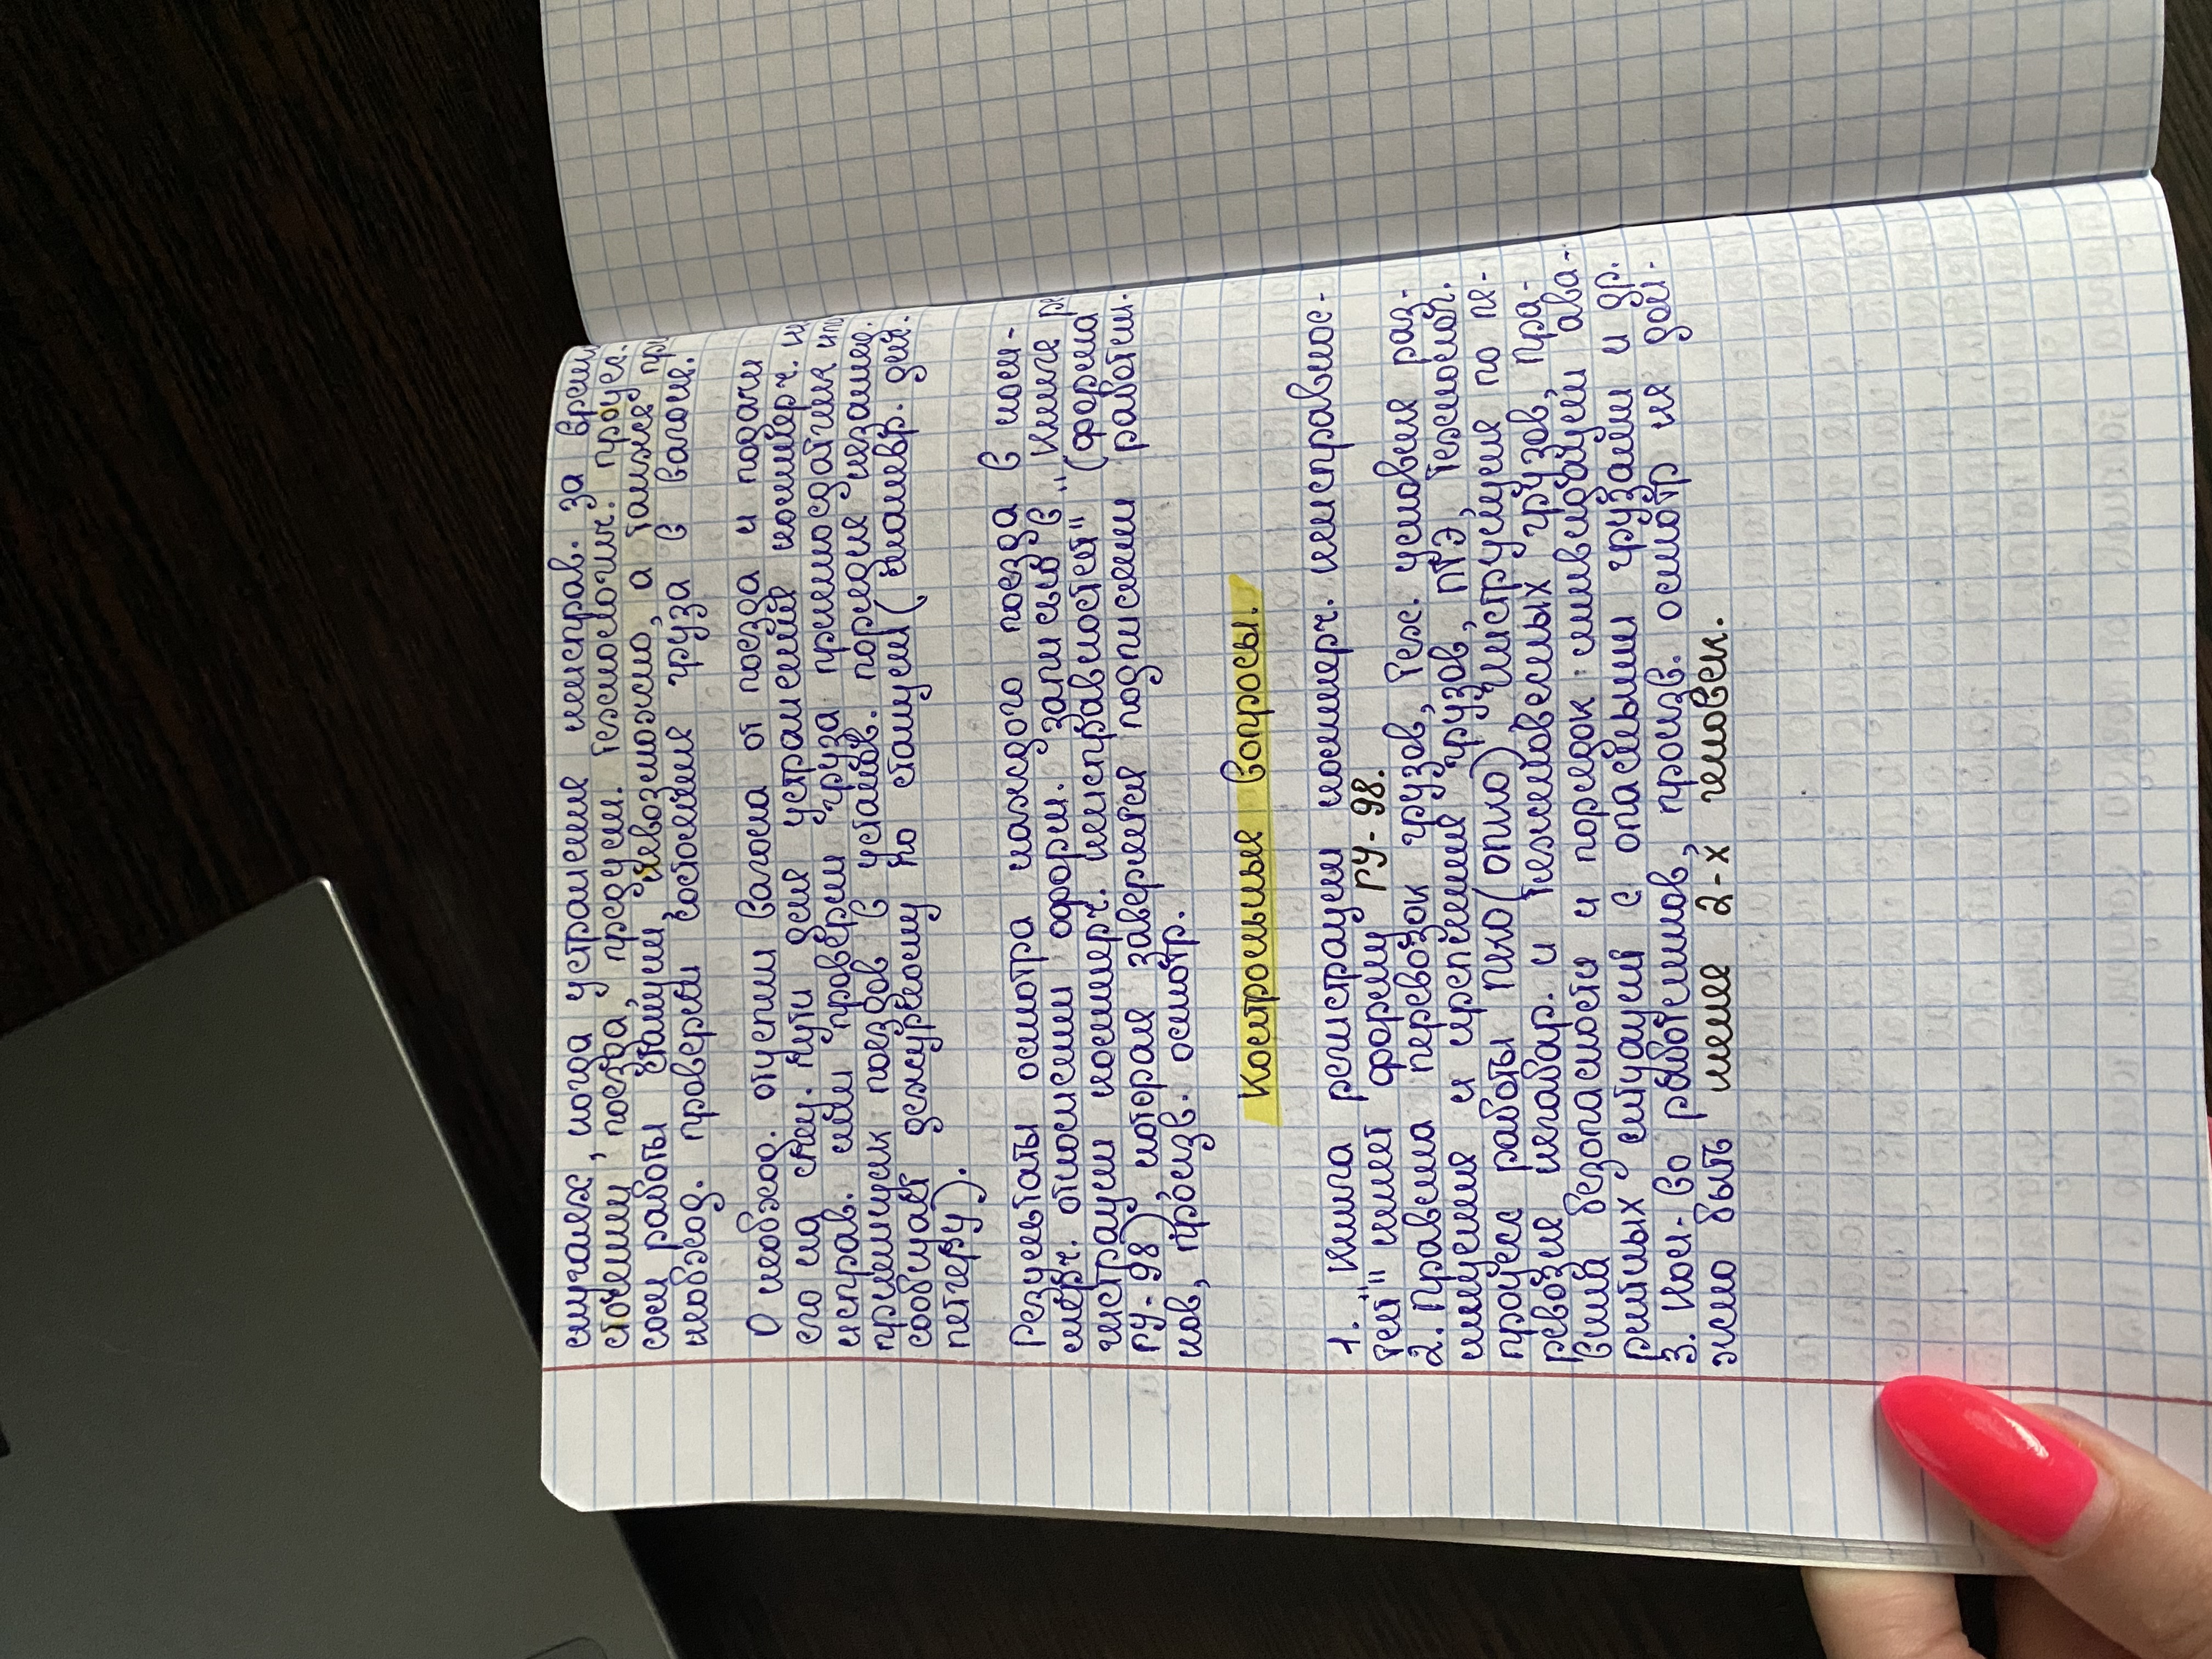 случаях, когда устранение неисправ. за время
стоянки поезда, предусм. технологич. процес.
сом работы станции, невозможно, а также при
необход. проверки состояния груза в вагоне.
О необход. отцепки вагона от поезда и подачи
его на спец. пути для устранения коммерч. не
исправ. или проверки груза приемосдатчик или
приемщик поездов в установ. порядке незамед.
сообщает дежурному по станции (маневр. дис.
петчеру).
Результаты осмотра каждого поезда в ком-
мерч. отношении оформ. записью в "Книге ре
гистрации коммерч. неисправностей" (форма
ГУ-98), которая заверяется подписями работни.
ков, произв. осмотр.
Контрольные вопросы.
1. "Книга регистрации коммерч. неисправнос-
тей" имеет форму ГУ-98.
2. Правила перевозок грузов, тех. условия раз-
мещения и крепления грузов, ПТЭ, технолог.
процесс работы ПКО (опко) инструкция по пе-
ревозке негабар. и тяжеловесных грузов, пра-
вила безопасности и порядок ликвидации ава-
рийных ситуаций с опасными грузами и др.
3. Кол-во работников, произв. осмотр не дол-
жно быть менее 2-х человек.